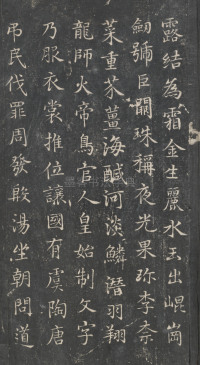 露結為霜金生麗水玉出崐崗
劒號巨闕珠稱夜光果珎李柰
菜重芥薑海醎河淡鱗潛羽翔
龍師火帝鳥官人皇始制文字
乃服衣裳推位讓國有虞陶唐
弔民伐罪周發殷湯坐朝問道